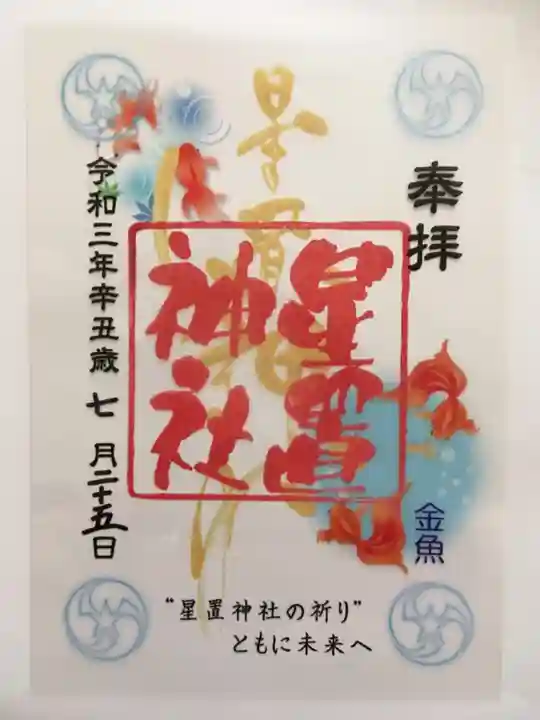 奉拝
星置神社
星置
神社
令和三年辛丑歳 七月二十五日
金魚
“星置神社の祈り”
ともに未来へ